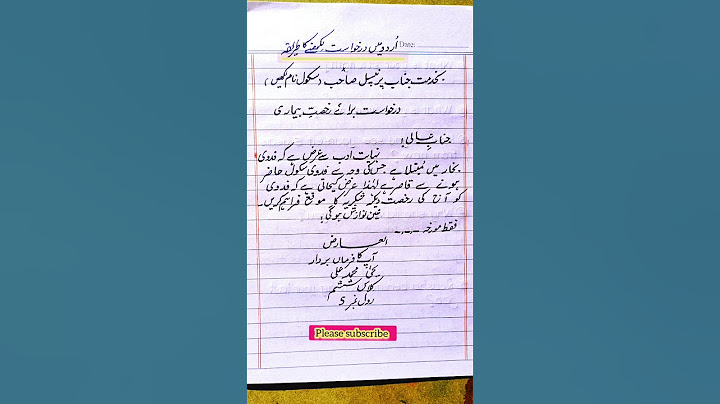 اُردو میں درخواست لکھنے کا طریقہ Date:
بخدمت جناب پرنسپل صاحب (سکول نام لکھیں)
درخواست برائے رخصتِ بیماری
جنابِ عالی!
نہایت ادب سے عرض ہے کہ فدوی
بخار میں مُبتلا ہے جس کی وجہ سے فدوی سکول حاضر
ہونے سے قاصر ہے لہٰذا عرض کیجاتی ہے کہ فدوی
کو آج کی رخصت دیکر شکریہ کا موقع فراہم کریں۔
عین نوازش ہوگی!
فقط مورخہ -.-.-
العارض
آپ کا فرماں بردار
محمد علی
کلاس ششم
رول نمبر 5
Please subscribe